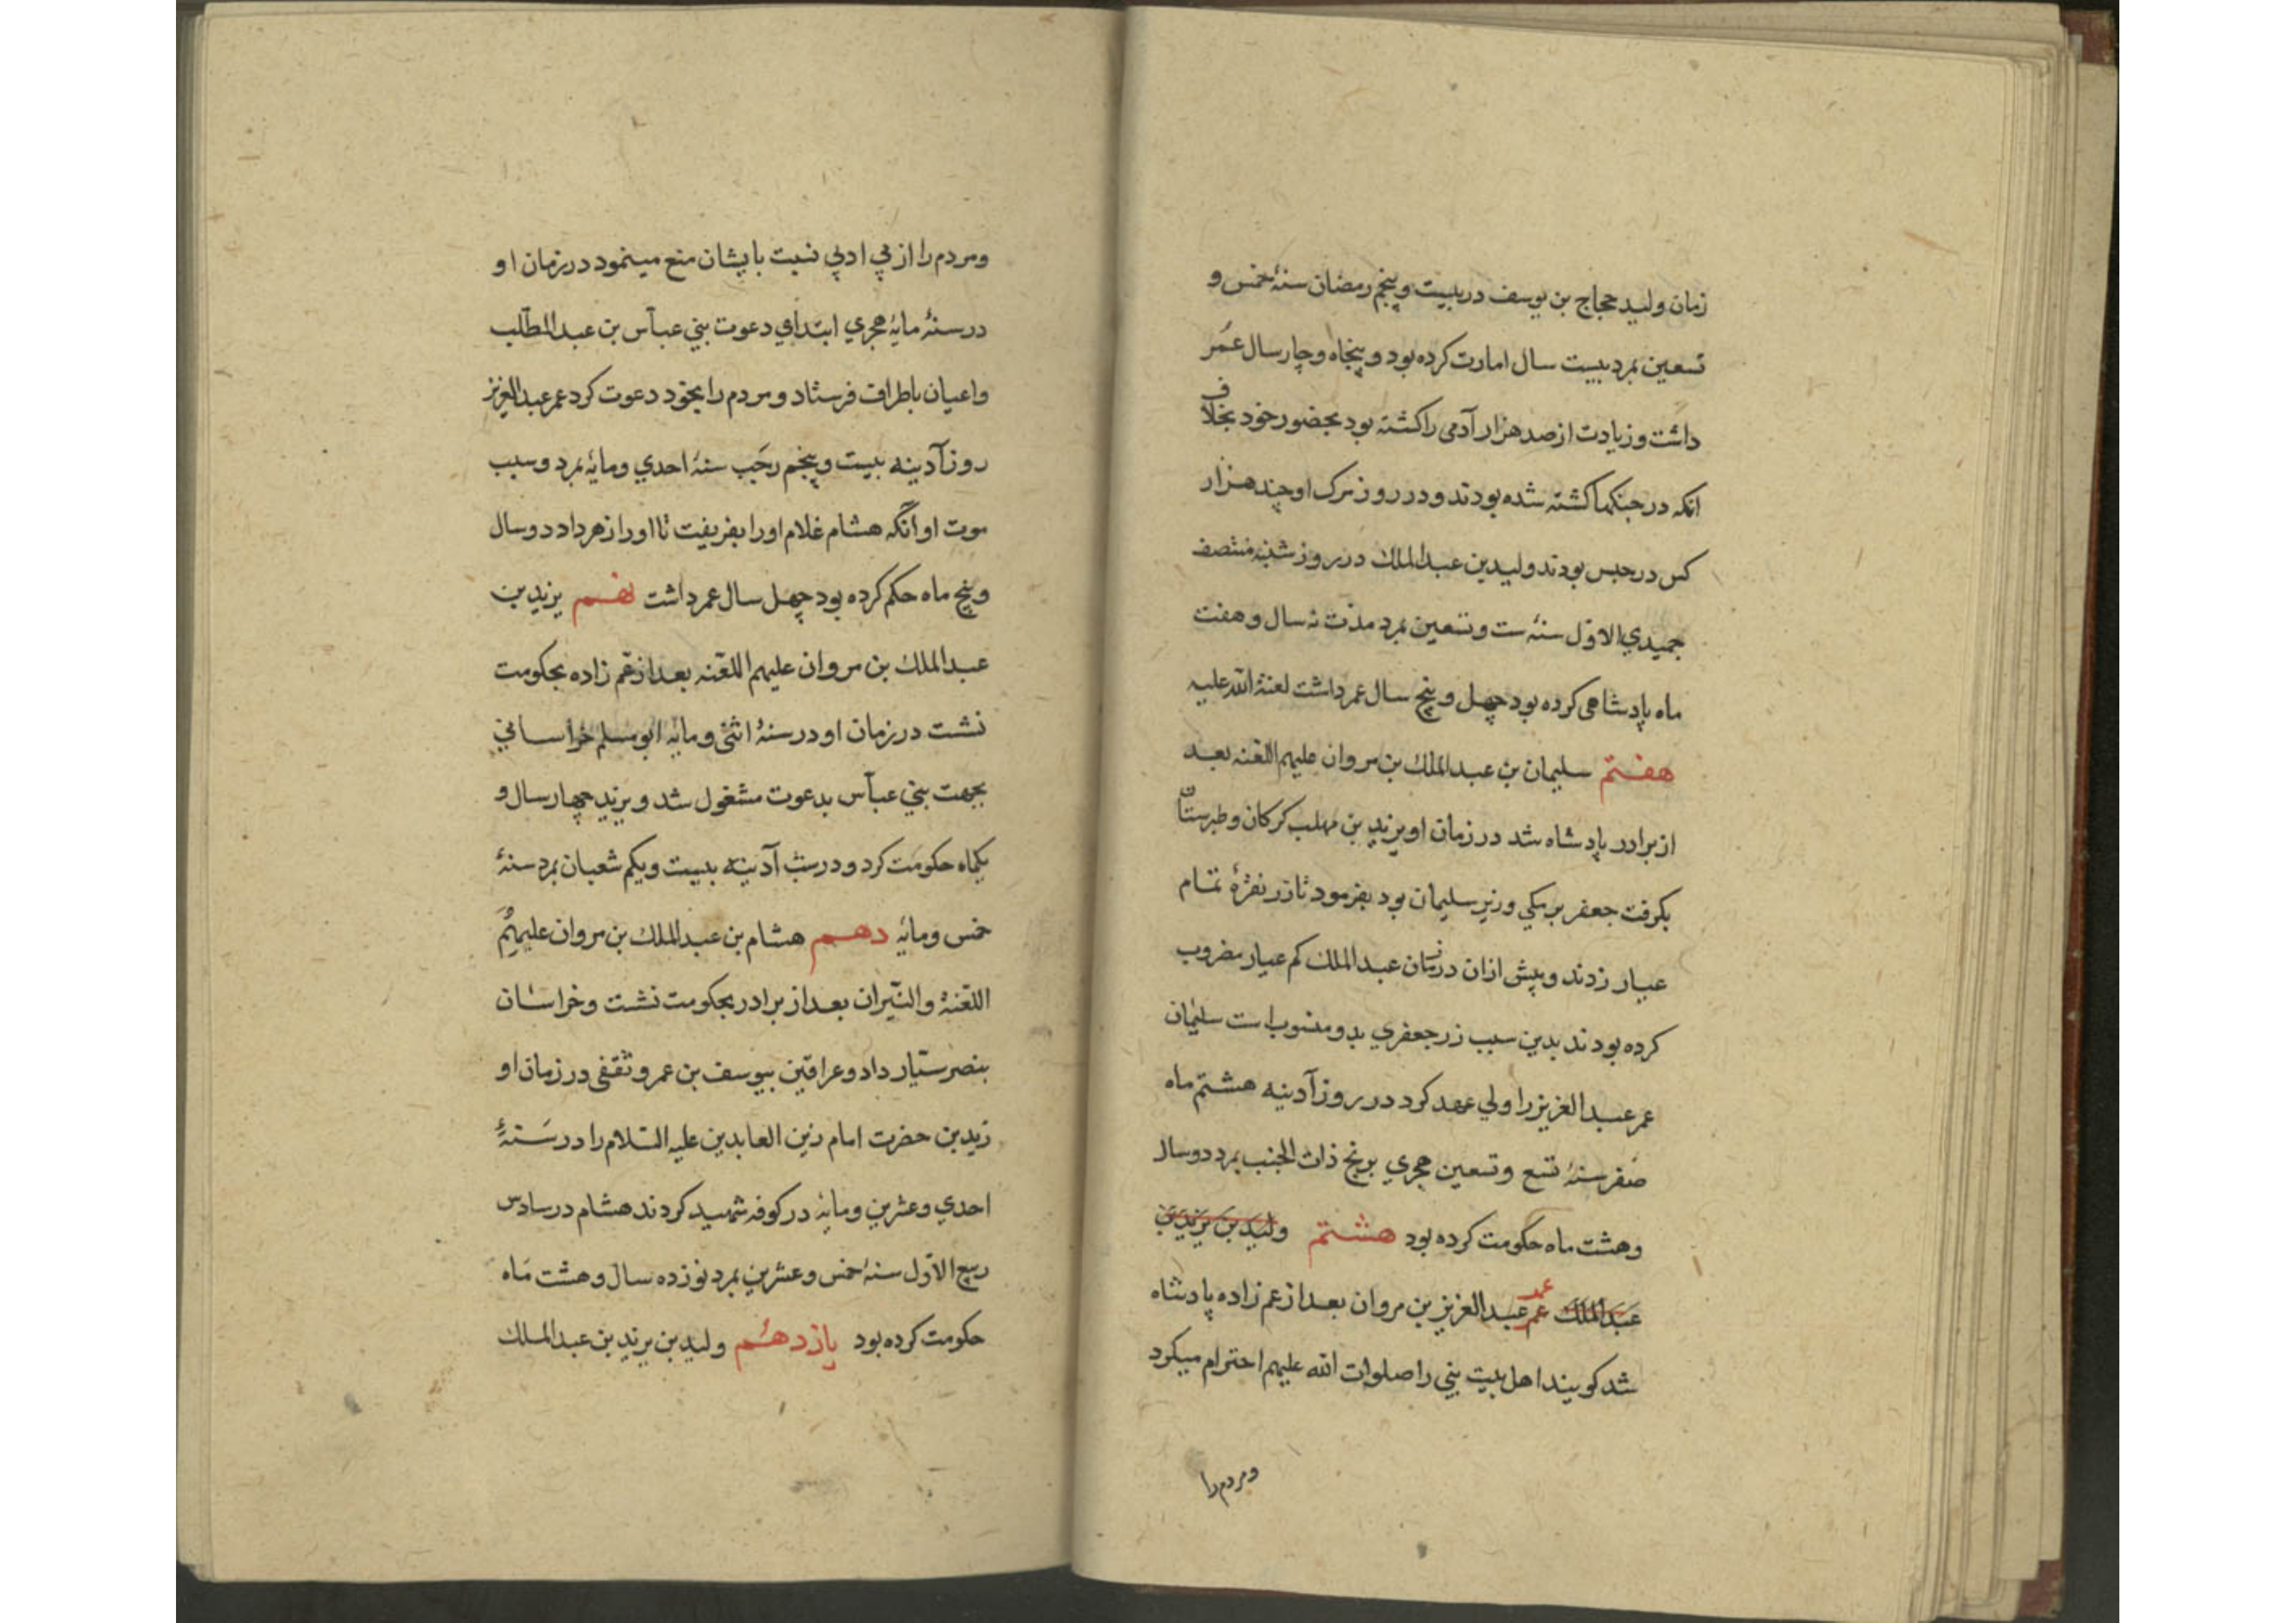 زمان ولید حجاج بن یوسف در بیست و پنجم رمضان سنهٔ خمس و
تسعین بمرد بیست سال امارت کرده بود و پنجاه و چار سال عمر
داشت و زیادت از صد هزار آدمی را کشته بود بحضور خود بخلاف
انکه در جنکها کشته شده بودند و در روز مرک او چند هزار
کس در حبس بودند ولید بن عبدالملک در روز شنبه منتصف
جمیدي الاوّل سنهٔ ست و تسعین بمرد مدّت نه سال و هفت
ماه پادشاهی کرده بود چهل و پنج سال عمر داشت لعنة الله علیه
هفتم سلیمان بن عبدالملک بن مروان علیهم اللعنه بعد
از برادر پادشاه شد در زمان او یزید بن مهلب کرکان و طبرستان
بکرفت جعفر برمکي وزیر سلیمان بود بفرمود تا زر نقرهٔ تمام
عیار زدند و پیش ازان در زمان عبدالملک کم عیار مضروب
کرده بودند بدین سبب زر جعفري بدو منسوب است سلیمان
عمر عبدالعزیز را ولي عهد کرد در روز آدینه هشتم ماه
صفر سنهٔ تسع و تسعین هجري برنج ذات الجنب بمرد دو سال
و هشت ماه حکومت کرده بود هشتم ولید بن یزید بن
عبدالملک عمر عمر عبدالعزیز بن مروان بعد از عم زاده پادشاه
شد کویند اهل بیت نبي را صلوات الله علیهم احترام میکرد
و مردم را
و مردم را از بي ادبي نسبت بایشان منع مینمود در زمان او
در سنهٔ مایهٔ هجري ابتداي دعوت بني عبّاس بن عبدالمطّلب
و اعیان باطراف فرستاد و مردم را بخود دعوت کرد عمر عبدالعزیز
روز آدینه بیست و پنجم رجب سنهٔ احدي و مایهٔ بمرد و سبب
موت او آنکه هشام غلام او را بفریفت تا او را زهر داد دو سال
و پنج ماه حکم کرده بود چهل سال عمر داشت نهم یزید بن
عبدالملک بن مروان علیهم اللعنه بعد از عم زاده بحکومت
نشت در زمان او در سنهٔ اثني و مایه ابو مسلم خراساني
بجهت بني عبّاس بدعوت مشغول شد و یزید چهار سال و
یکماه حکومت کرد و در شب آدینه بیست و یکم شعبان بمرد سنهٔ
خمس و مایه دهم هشام بن عبدالملک بن مروان علیهم
اللعنة والنّیران بعد از برادر بحکومت نشت و خراسان
بنصر سیّار داد و عراقین بیوسف بن عمرو ثقفی در زمان او
زید بن حضرت امام زین العابدین علیه السّلام را در سنهٔ
احدي و عشرین و مایه در کوفه شهید کردند هشام در سادس
ربیع الاوّل سنهٔ خمس و عشرین بمرد نوزده سال و هشت ماه
حکومت کرده بود یازدهم ولید بن یزید بن عبدالملک